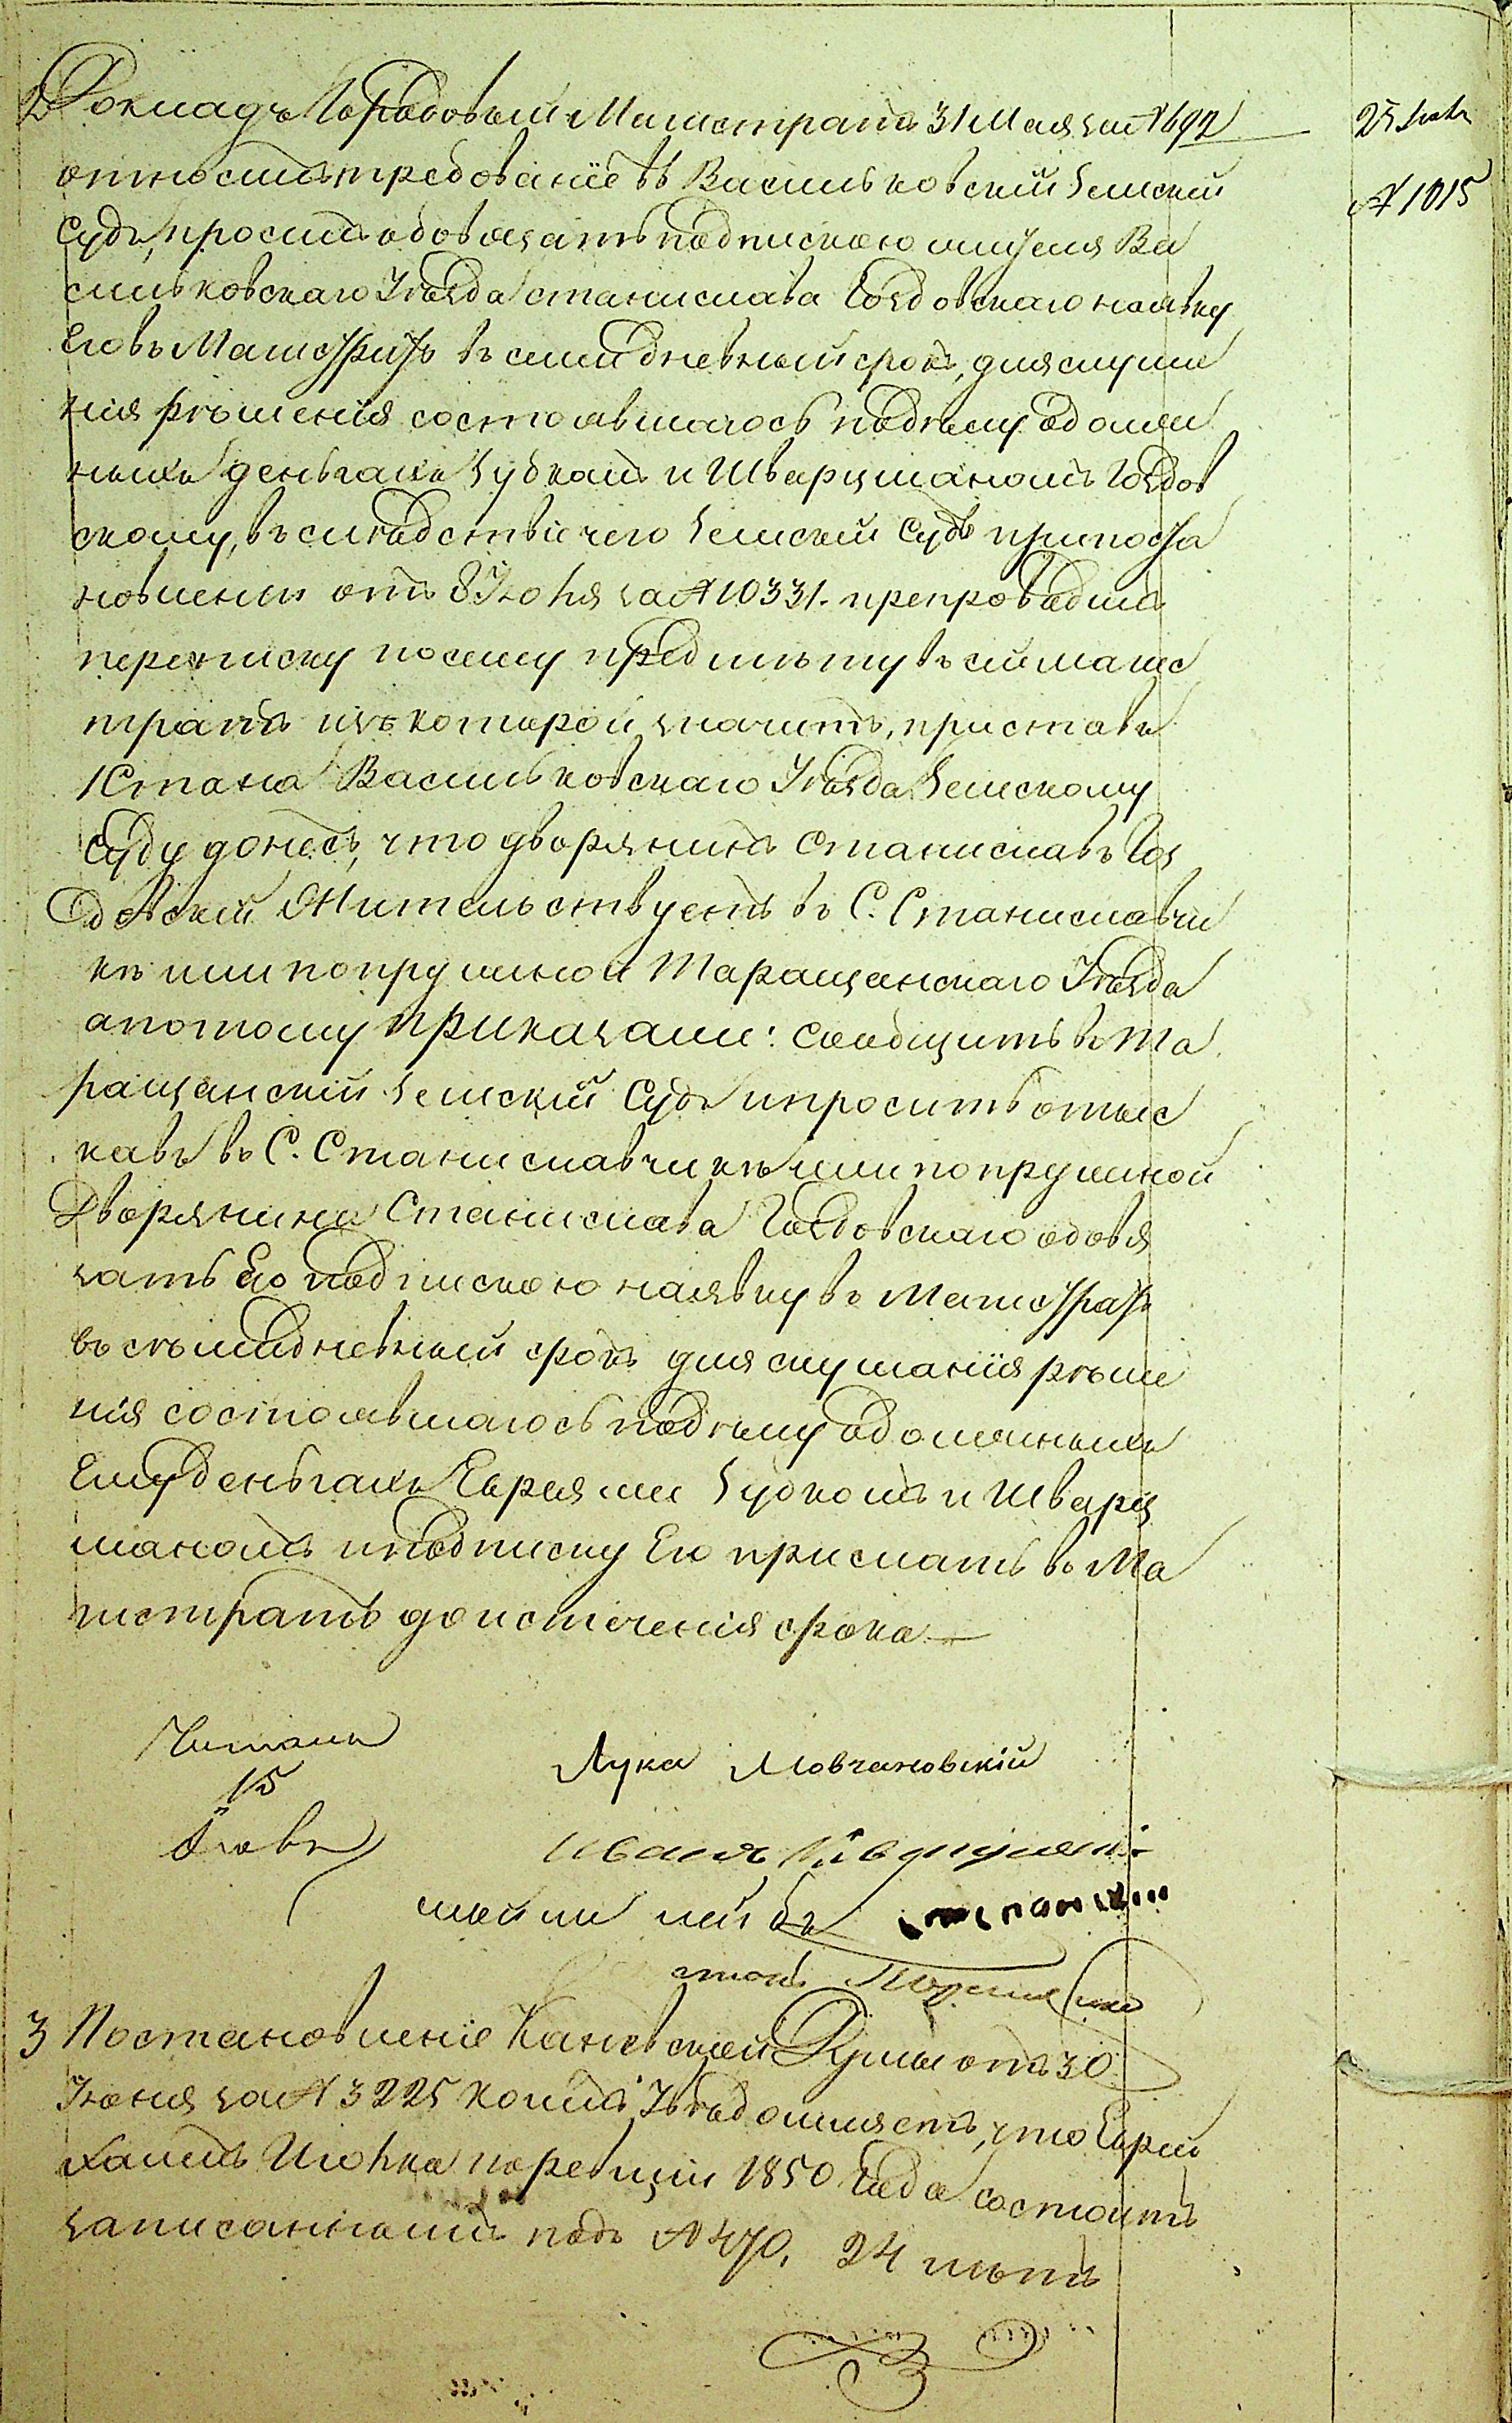 2 Докладъ Городовый Магистратъ 31 Мая за № 1697
25 Июля
отно симъ требованіе въ Васильковскій Земскій
№ 1015
Судъ, просилъ обовязать подпискою жителя Ва
сильковскаго Уѣзда станислава Гоздовскаго на явку
Его въ Магистратъ въ семидневный срокъ, для слуша
нія рѣшенія состоявшагося по дѣлу обомѣ
ныхъ деньгахъ Зубкомъ и Шварцманомъ Гоздов
скому, въ слѣдствіи чего Земскій Судъ при поста
новленіи отъ 8 Іюня за № 10331. препроводилъ
переписку по сему предмѣту въ сей магис
тратъ изъ которой значитъ, приставъ
1 Стана Васильковскаго Уѣзда Земскому
Суду донесъ, что дворянинъ Станиславъ Гоз
довскій Жительствуетъ въ С. Станиславчи
кѣ или попружной Таращанскаго Уѣзда
а потому приказали: сообщить въ Та
ращанскій Земскій Судъ и просить отыс
кавъ въ С. Станиславчикѣ или попружной
Дворянина Станислава Гоздовскаго обовя
зать Его подпискою на явку въ Магистратъ
въ семидневный срокъ для слушанія рѣше
нія состоявшагося по дѣлу обомѣнныхъ
Ему деньгахъ Евреями Зубкомъ и Шварц
маномъ и подписку Его прислать въ Ма
гистратъ до истеченія срока
Читалъ
15
Лука Мовчановскій
Иванъ
лейбъ
3 Постановленіе Каневской Думы отъ 30
Іюня за № 3225 коимъ Увѣдомляетъ, что Еврей
Хаимъ Июнка по ревизіи 1850 Года состоитъ
записаннымъ подъ № 470, 24 лѣтъ